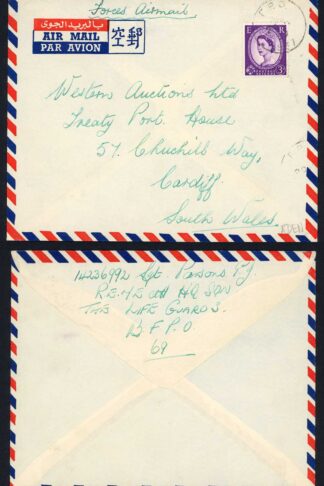 Forces Airmail
بالبريد الجوى
AIR MAIL
PAR AVION
空郵
E R
3D
Western Auctions Ltd
Treaty Port House
57. Chuchill Way,
Cardiff
South Wales.
ADEN
14236992 Sgt. Parsons F.J.
R.E.M.E att HQ SQN
THE LIFE GUARDS.
B F P O
69